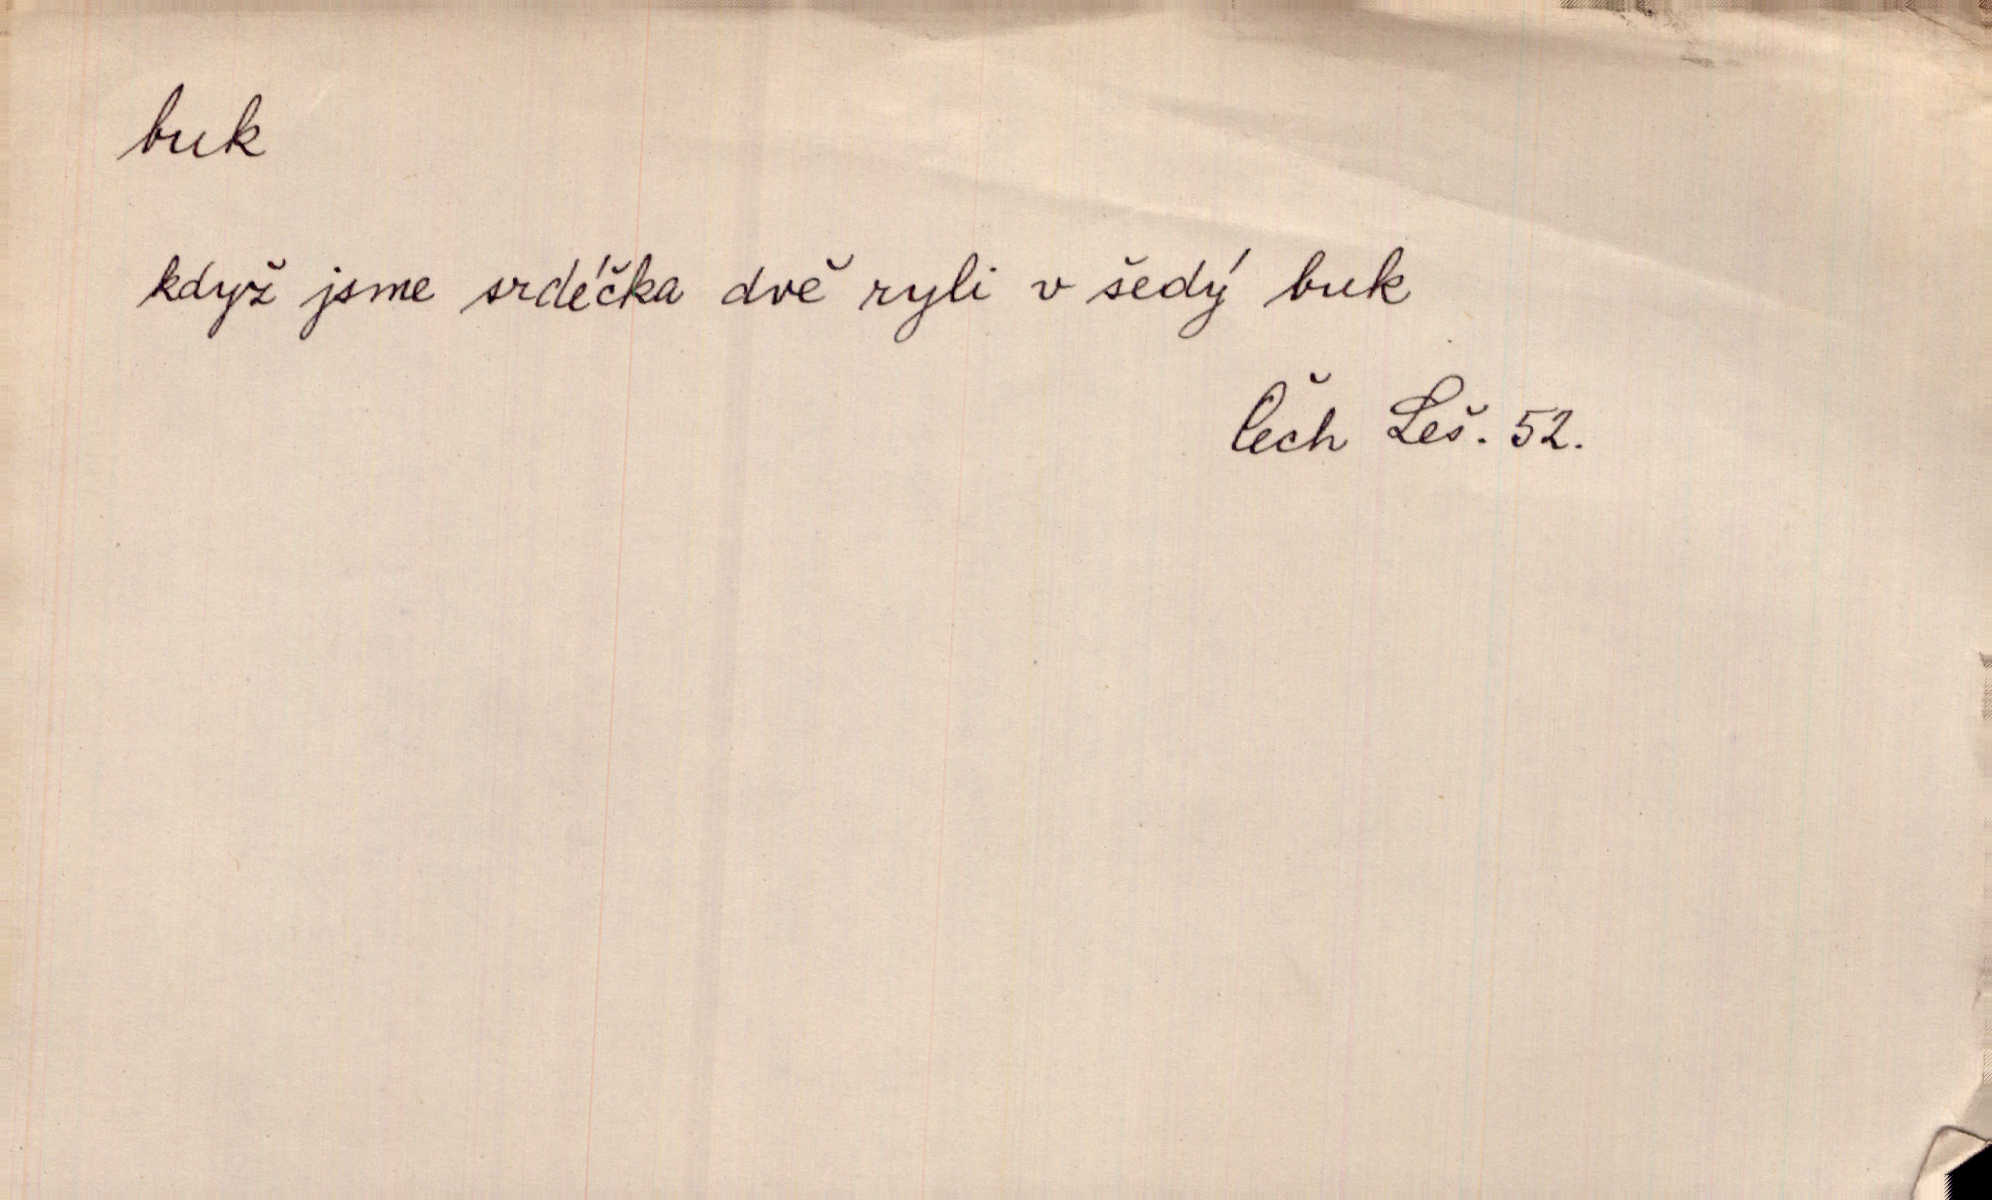 buk
když jsme srdéčka dvě ryli v šedý buk
Čech Leš. 52.